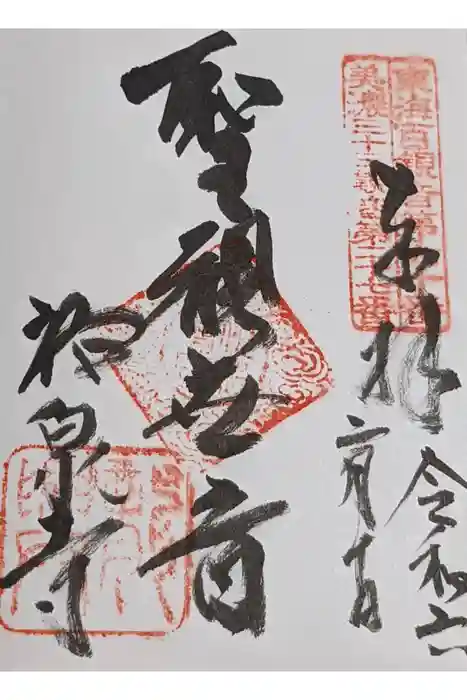 東海百観音第
美濃三十三観音第二十七番
奉拝
令和六
二月十日
聖観世音
祐泉寺